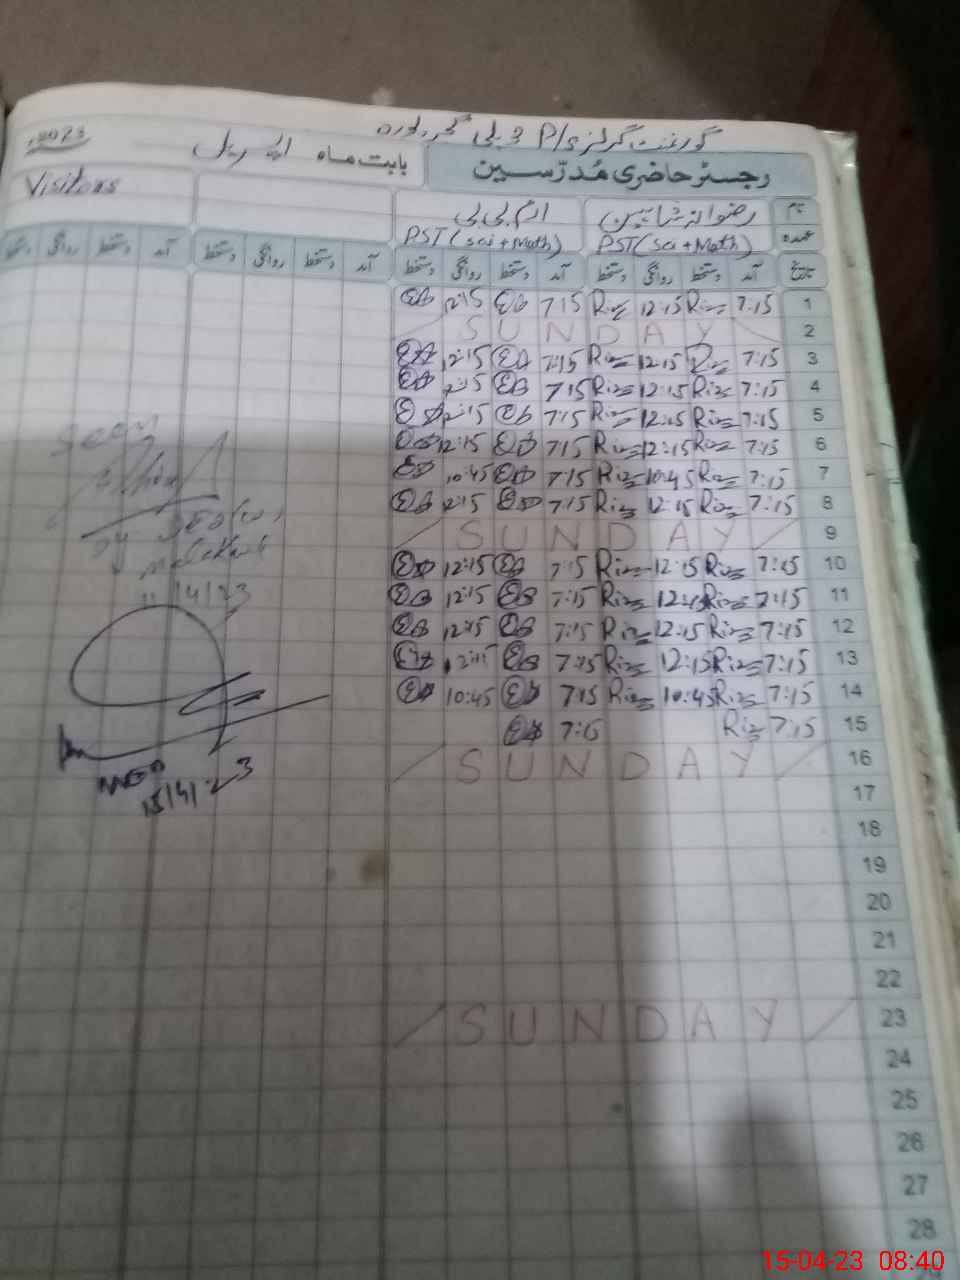 گورنمنٹ گرلز P/s
رجسٹر حاضری مُدرّسین
بابت ماہ اپریل 2023
نام رضوانہ شاہین ام بی بی Visitors
عہدہ PST(Sci+Math) PST(Sci+Math)
تاریخ آمد دستخط روانگی دستخط آمد دستخط روانگی دستخط آمد دستخط روانگی دستخط آمد دستخط روانگی دستخط
1 7:15 Riz 12:15 Riz 7:15 12:15
2 SUNDAY
3 7:15 Riz 12:15 Riz 7:15 12:15
4 7:15 Riz 12:15 Riz 7:15 12:15
5 7:15 Riz 12:15 Riz 7:15 12:15
6 7:15 Riz 12:15 Riz 7:15 12:15
7 7:15 Riz 10:45 Riz 7:15 10:45
8 7:15 Riz 12:15 Riz 7:15 12:15
9 SUNDAY
10 7:15 Riz 12:15 Riz 7:15 12:15
11 7:15 Riz 12:15 Riz 7:15 12:15
12 7:15 Riz 12:15 Riz 7:15 12:15
13 7:15 Riz 12:15 Riz 7:15 12:15
14 7:15 Riz 10:45 Riz 7:15 10:45
15 7:15 Riz
16 SUNDAY
17
18
19
20
21
22
23 SUNDAY
24
25
26
27
28
Seen
11/4/23
15/4/23
15-04-23 08:40